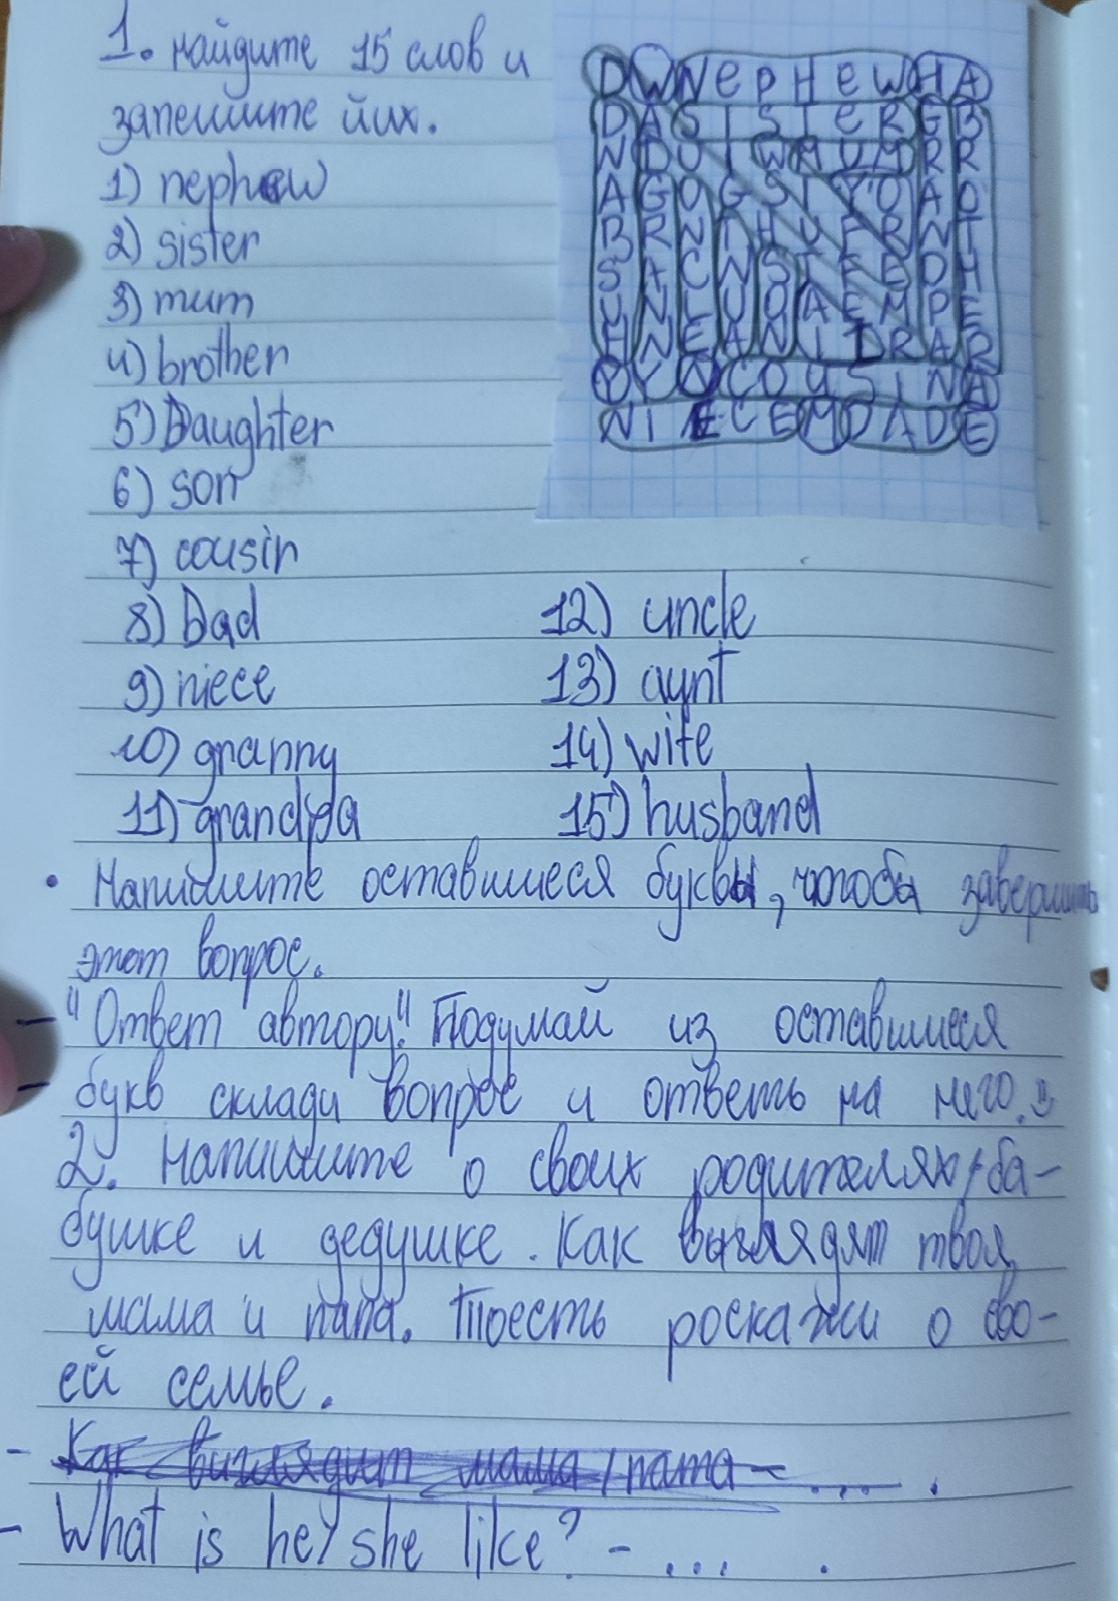 1. найдите 15 слов и
запешите йих.
1) nephew
2) sister
3) mum
4) brother
5) Daughter
6) son
7) cousin
8) Dad
9) niece
10) granny
11) grandpa
12) uncle
13) aynt
14) wife
15) husband
D W N e P H e W H A
D A S I S T e R G B
N D U I W M U M R R
A G O G S I Y O A O
B R N T H U F R N T
S A C N S T E E D H
U N L U O A E M P E
H N E A N I D R A R
Y Y A C O U S I N A
N I E C E M D A D E
• Напишите оставшиеся буквы, чтобы завершить
этот вопрос.
- "Ответ автору". Подумай из оставшиеся
- букв склади вопрос и ответь на него."
2. Напишите о своих родителях, ба-
бушке и дедушке. Как выглядят твоя
мама и папа. Тоесть роскажи о сво-
ей семье.
- Как виглядит мама/папа - ... .
- What is he/she like? - ... .